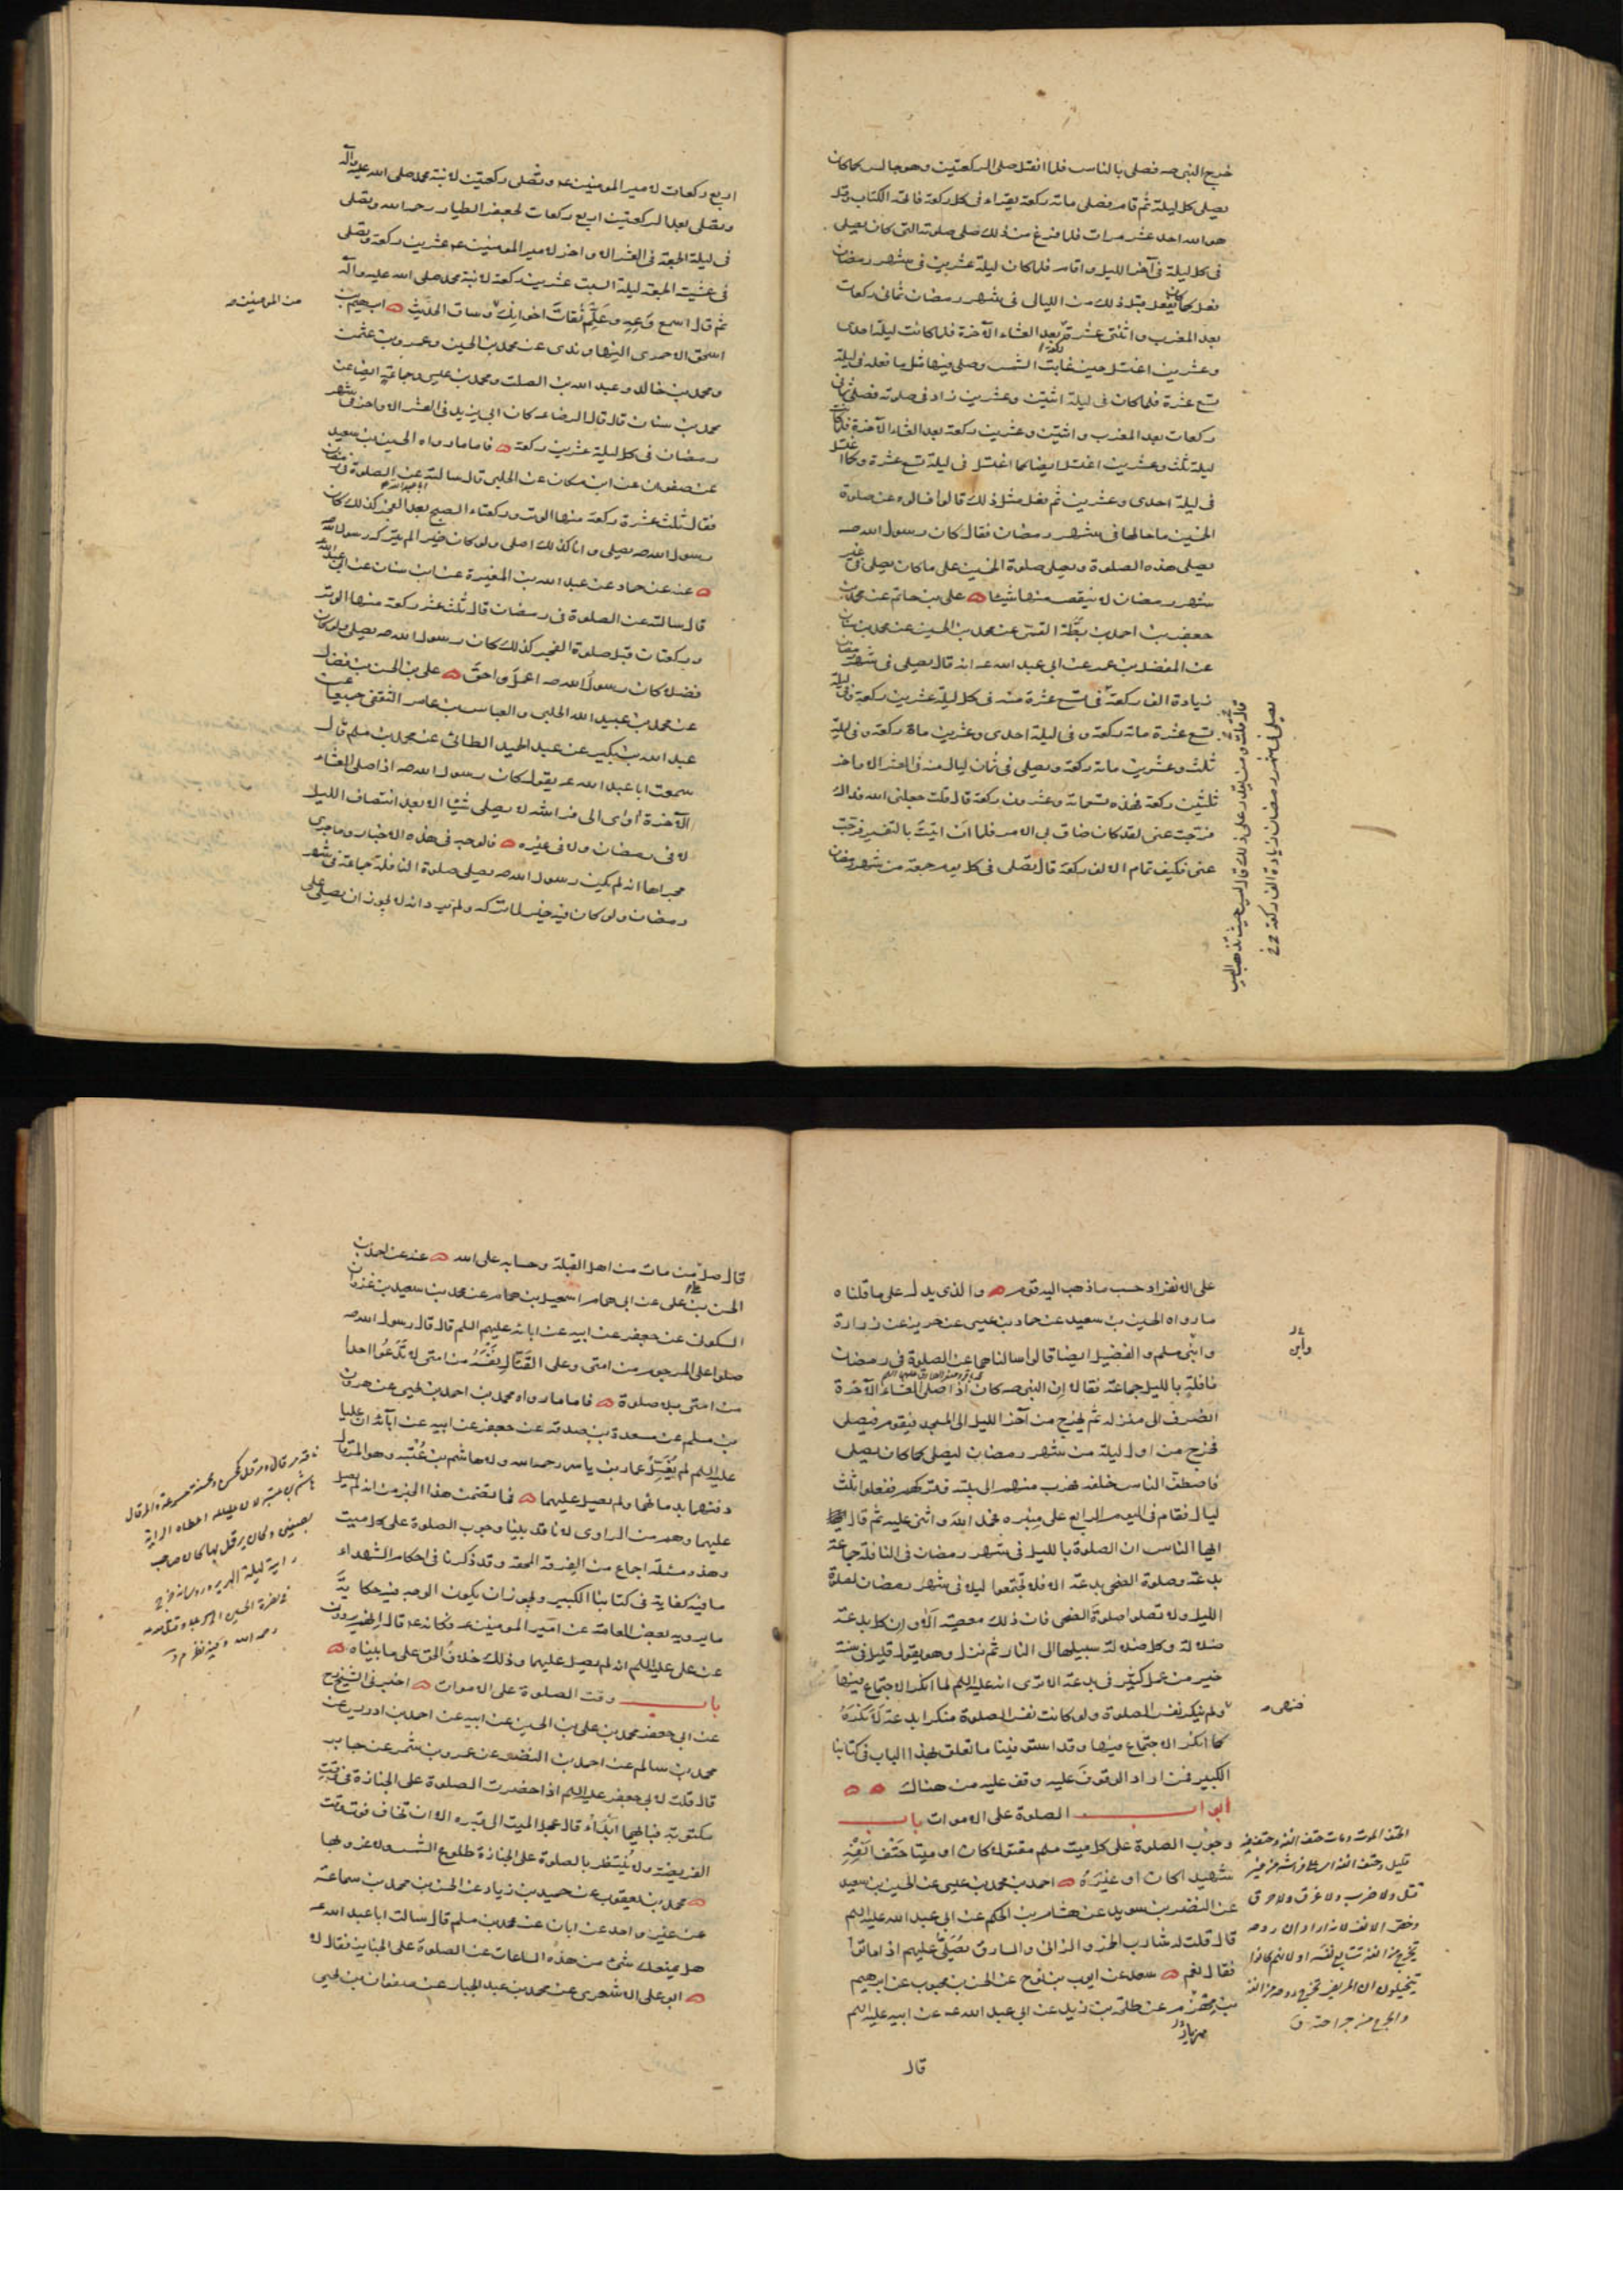 خرج النبي صه فصلى بالناس فلما انفتل صلى الركعتين وهو جالس كما كان
يصلى كل ليلة ثم قام فصلى مائة ركعة يقراء فى كل ركعة فاتحة الكتاب وقل
هو الله احد عشر مرات فلما فرغ من ذلك صلى صلوته التى كان يصلى
فى كل ليلة فى آخر الليل واقام فلما كان ليلة عشرين فى شهر رمضان
فعل كما كان يفعل قبل ذلك من الليالى فى شهر رمضان ثمانى ركعات
بعد المغرب واثنتى عشرة ركعة بعد العشاء الآخرة فلما كانت ليلة احدى
وعشرين اغتسل حين غابت الشمس وصلى فيها مثل ما فعل فى ليلة
تسع عشرة فلما كان فى ليلة اثنتين وعشرين زاد فى صلوته فصلى ثمانى
ركعات بعد المغرب واثنتين وعشرين ركعة بعد العشاء الآخرة فلما كانت
ليلة ثلث وعشرين اغتسل ايضا كما اغتسل فى ليلة تسع عشرة وكما اغتسل
فى ليلة احدى وعشرين ثم فعل مثل ذلك قالوا فسالوه عن صلوة
الخمسين ما حالها فى شهر رمضان فقال كان رسول الله صه
يصلى هذه الصلوة ويصلى صلوة الخمسين على ما كان يصلى فى غير
شهر رمضان لا ينقص منها شيئا على بن حاتم عن محمد بن
جعفر بن احمد بن بطة القمى عن محمد بن الحسين عن محمد بن سنان
عن المفضل بن عمر عن ابى عبد الله عه انه قال يصلى فى شهر رمضان
زيادة الف ركعة
فى تسع عشرة منه فى كل ليلة عشرين ركعة وفى ليلة
تسع عشرة مائة ركعة وفى ليلة احدى وعشرين مائة ركعة وفى ليلة
ثلث وعشرين مائة ركعة ويصلى فى ثمان ليال منه فى العشر الاواخر
ثلثين ركعة فهذه تسعمائة وعشرون ركعة قال قلت جعلنى الله فداك
فرجت عنى لقد كان ضاق بى الامر فلما ان اتيت بالتفسير فرجت
عنى فكيف تمام الالف ركعة قال تصلى فى كل يوم جمعة من شهر رمضان
قال قلت ومن يقدر على ذلك قال ليس حيث تذهب اليس
يصلى فى شهر رمضان زيادة الف ركعة
اربع ركعات لامير المومنين عه وتصلى ركعتين لابنة محمد صلى الله عليه وآله
وتصلى بعد الركعتين اربع ركعات لجعفر الطيار رحمه الله وتصلى
فى ليلة الجمعة فى العشر الاواخر لامير المومنين عه عشرين ركعة وتصلى
فى عشية الجمعة ليلة السبت عشرين ركعة لابنة محمد صلى الله عليه وآله
ثم قال اسمع وعه وعلم ثقات اخوانك وساق الحديث ابرهيم بن
من المومنين
اسحق الاحمرى النهاوندى عن محمد بن الحسين وعمرو بن عثمن
ومحمد بن خالد وعبد الله بن الصلت ومحمد بن عيسى وجماعة ايضا عن
محمد بن سنان قال قال الرضا عه كان ابى يزيد فى العشر الاواخر فى شهر
رمضان فى كل ليلة عشرين ركعة فاما ما رواه الحسين بن سعيد
عن صفوان عن ابن مسكان عن الحلبى قال سالته عن الصلوة فى رمضان
فقال ثلث عشرة ركعة منها الوتر وركعتا الصبح بعد الفجر كذلك كان
رسول الله صه يصلى وانا كذلك اصلى ولو كان خيرا لم يتركه رسول الله
عنه عن حماد عن عبد الله بن المغيرة عن ابن سنان عن ابى عبد الله
قال سالته عن الصلوة فى رمضان قال ثلث عشر ركعة منها الوتر
وركعتان قبل صلوة الفجر كذلك كان رسول الله صه يصلى ولو كان
فضلا كان رسول الله صه اعمل واحق على بن الحسن بن فضال
عن محمد بن عبيد الله الحلبى والعباس بن عامر الثقفى جميعا عن
عبد الله بن بكير عن عبد الحميد الطائى عن محمد بن مسلم قال
سمعت ابا عبد الله عه يقول كان رسول الله صه اذا صلى العشاء
الآخرة اوى الى فراشه لا يصلى شيئا الا بعد انتصاف الليل
لا فى رمضان ولا فى غيره فالوجه فى هذه الاخبار وما جرى
مجراها انه لم يكن رسول الله صه يصلى صلوة النافلة جماعة فى شهر
رمضان ولو كان فيه خير لما تركه ولم يرد انه لا يجوز ان يصلى على
على الانفراد حسب ما ذهب اليه قوم والذى يدل على ما قلناه
ما رواه الحسين بن سعيد عن حماد بن عيسى عن حريز عن زرارة
وابن مسلم والفضيل ايضا قالوا سالناهما عن الصلوة فى رمضان
وابن
نافلة بالليل جماعة فقالا ان النبى صه كان اذا صلى العشاء الآخرة
انصرف الى منزله ثم يخرج من آخر الليل الى المسجد فيقوم فيصلى
فخرج من اول ليلة من شهر رمضان ليصلى كما كان يصلى
فاصطف الناس خلفه فهرب منهم الى بيته وتركهم ففعلوا ثلث
ليال فقام فى اليوم الرابع على منبره فحمد الله واثنى عليه ثم قال
ايها الناس ان الصلوة بالليل فى شهر رمضان فى النافلة جماعة
بدعة وصلوة الضحى بدعة الا فلا تجتمعوا ليلا فى شهر رمضان لصلوة
الليل ولا تصلوا صلوة الضحى فان ذلك معصية الا وان كل بدعة
ضلالة وكل ضلالة سبيلها الى النار ثم نزل وهو يقول قليل فى سنة
خير من عمل كثير فى بدعة الا ترى انه عليه السلم لما انكر الاجتماع فيها
ولم ينكر نفس الصلوة ولو كانت نفس الصلوة منكرا بدعة لانكره
كما انكر الاجتماع فيها وقد استوفينا ما تعلق بهذا الباب فى كتابنا
الكبير فمن اراد الوقوف عليه وقف عليه من هناك
ابواب الصلوة على الاموات باب
وجوب الصلوة على كل ميت مسلم مقتولا كان او ميتا حتف انفه
شهيدا كان او غيره احمد بن محمد بن عيسى عن الحسين بن سعيد
عن النضر بن سويد عن هشام بن الحكم عن ابى عبد الله عليه السلم
قال قلت له شارب الخمر والزانى والسارق يصلى عليهم اذا ماتوا
فقال نعم سعد عن ايوب بن نوح عن الحسن بن محبوب عن ابرهيم
بن مهزم عن طلحة بن زيد عن ابى عبد الله عه عن ابيه عليه السلم
مهزيار
قال
قال صل من مات من اهل القبلة وحسابه على الله عنه عن احمد بن
الحسن بن على عن ابى همام اسمعيل بن همام عن محمد بن سعيد بن غزوان
السكونى عن جعفر عن ابيه عن ابائه عليهم السلم قال قال رسول الله صه
صلوا على المرجوم من امتى وعلى القتال نفسه من امتى لا تدعوا احدا
من امتى بلا صلوة فاما ما رواه محمد بن احمد بن يحيى عن هرون
بن مسلم عن مسعدة بن صدقة عن جعفر عن ابيه عن آبائه ان عليا
عليه السلم لم يغسل عمار بن ياسر رحمه الله ولا هاشم بن عتبة وهو المرقال
دفنهما بدمائهما ولم يصل عليهما فما تضمن هذا الخبر من انه لم يصل
عليهما وهم من الراوى لانا قد بينا وجوب الصلوة على كل ميت
وهذه مسئلة اجماع من الفرقة المحقة وقد ذكرنا فى احكام الشهداء
ما فيه كفاية فى كتابنا الكبير ويجوز ان يكون الوجه فيه حكاية
ما يرويه بعض العامة عن امير المومنين عه فكانه عه قال انهم يروون
عن على عليه السلم انه لم يصل عليهما وذلك خلاف الحق على ما بيناه
باب وقت الصلوة على الاموات اخبرنى الشيخ رح
عن ابى جعفر محمد بن على بن الحسين عن ابيه عن احمد بن ادريس عن
محمد بن سالم عن احمد بن النضر عن عمرو بن شمر عن جابر
قال قلت لابى جعفر عليه السلم اذا حضرت الصلوة على الجنازة فى وقت
مكتوبة فبايهما ابدا قال عجل الميت الى قبره الا ان تخاف فوت وقت
الفريضة ولا ينتظر بالصلوة على الجنازة طلوع الشمس ولا غروبها
محمد بن يعقوب عن حميد بن زياد عن الحسن بن محمد بن سماعة
عن غير واحد عن ابان عن محمد بن مسلم قال سالت ابا عبد الله عه
هل يمنعك شئ من هذه الساعات عن الصلوة على الجنايز فقال لا
ابو على الاشعرى عن محمد بن عبد الجبار عن صفوان بن يحيى